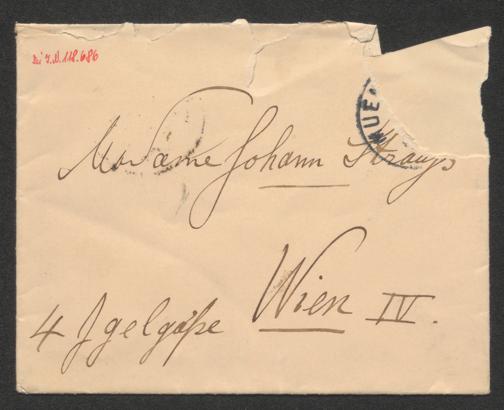 bei I.N. 118.686
UE
Madame Johann Strauß
Wien IV.
4 Igelgaße